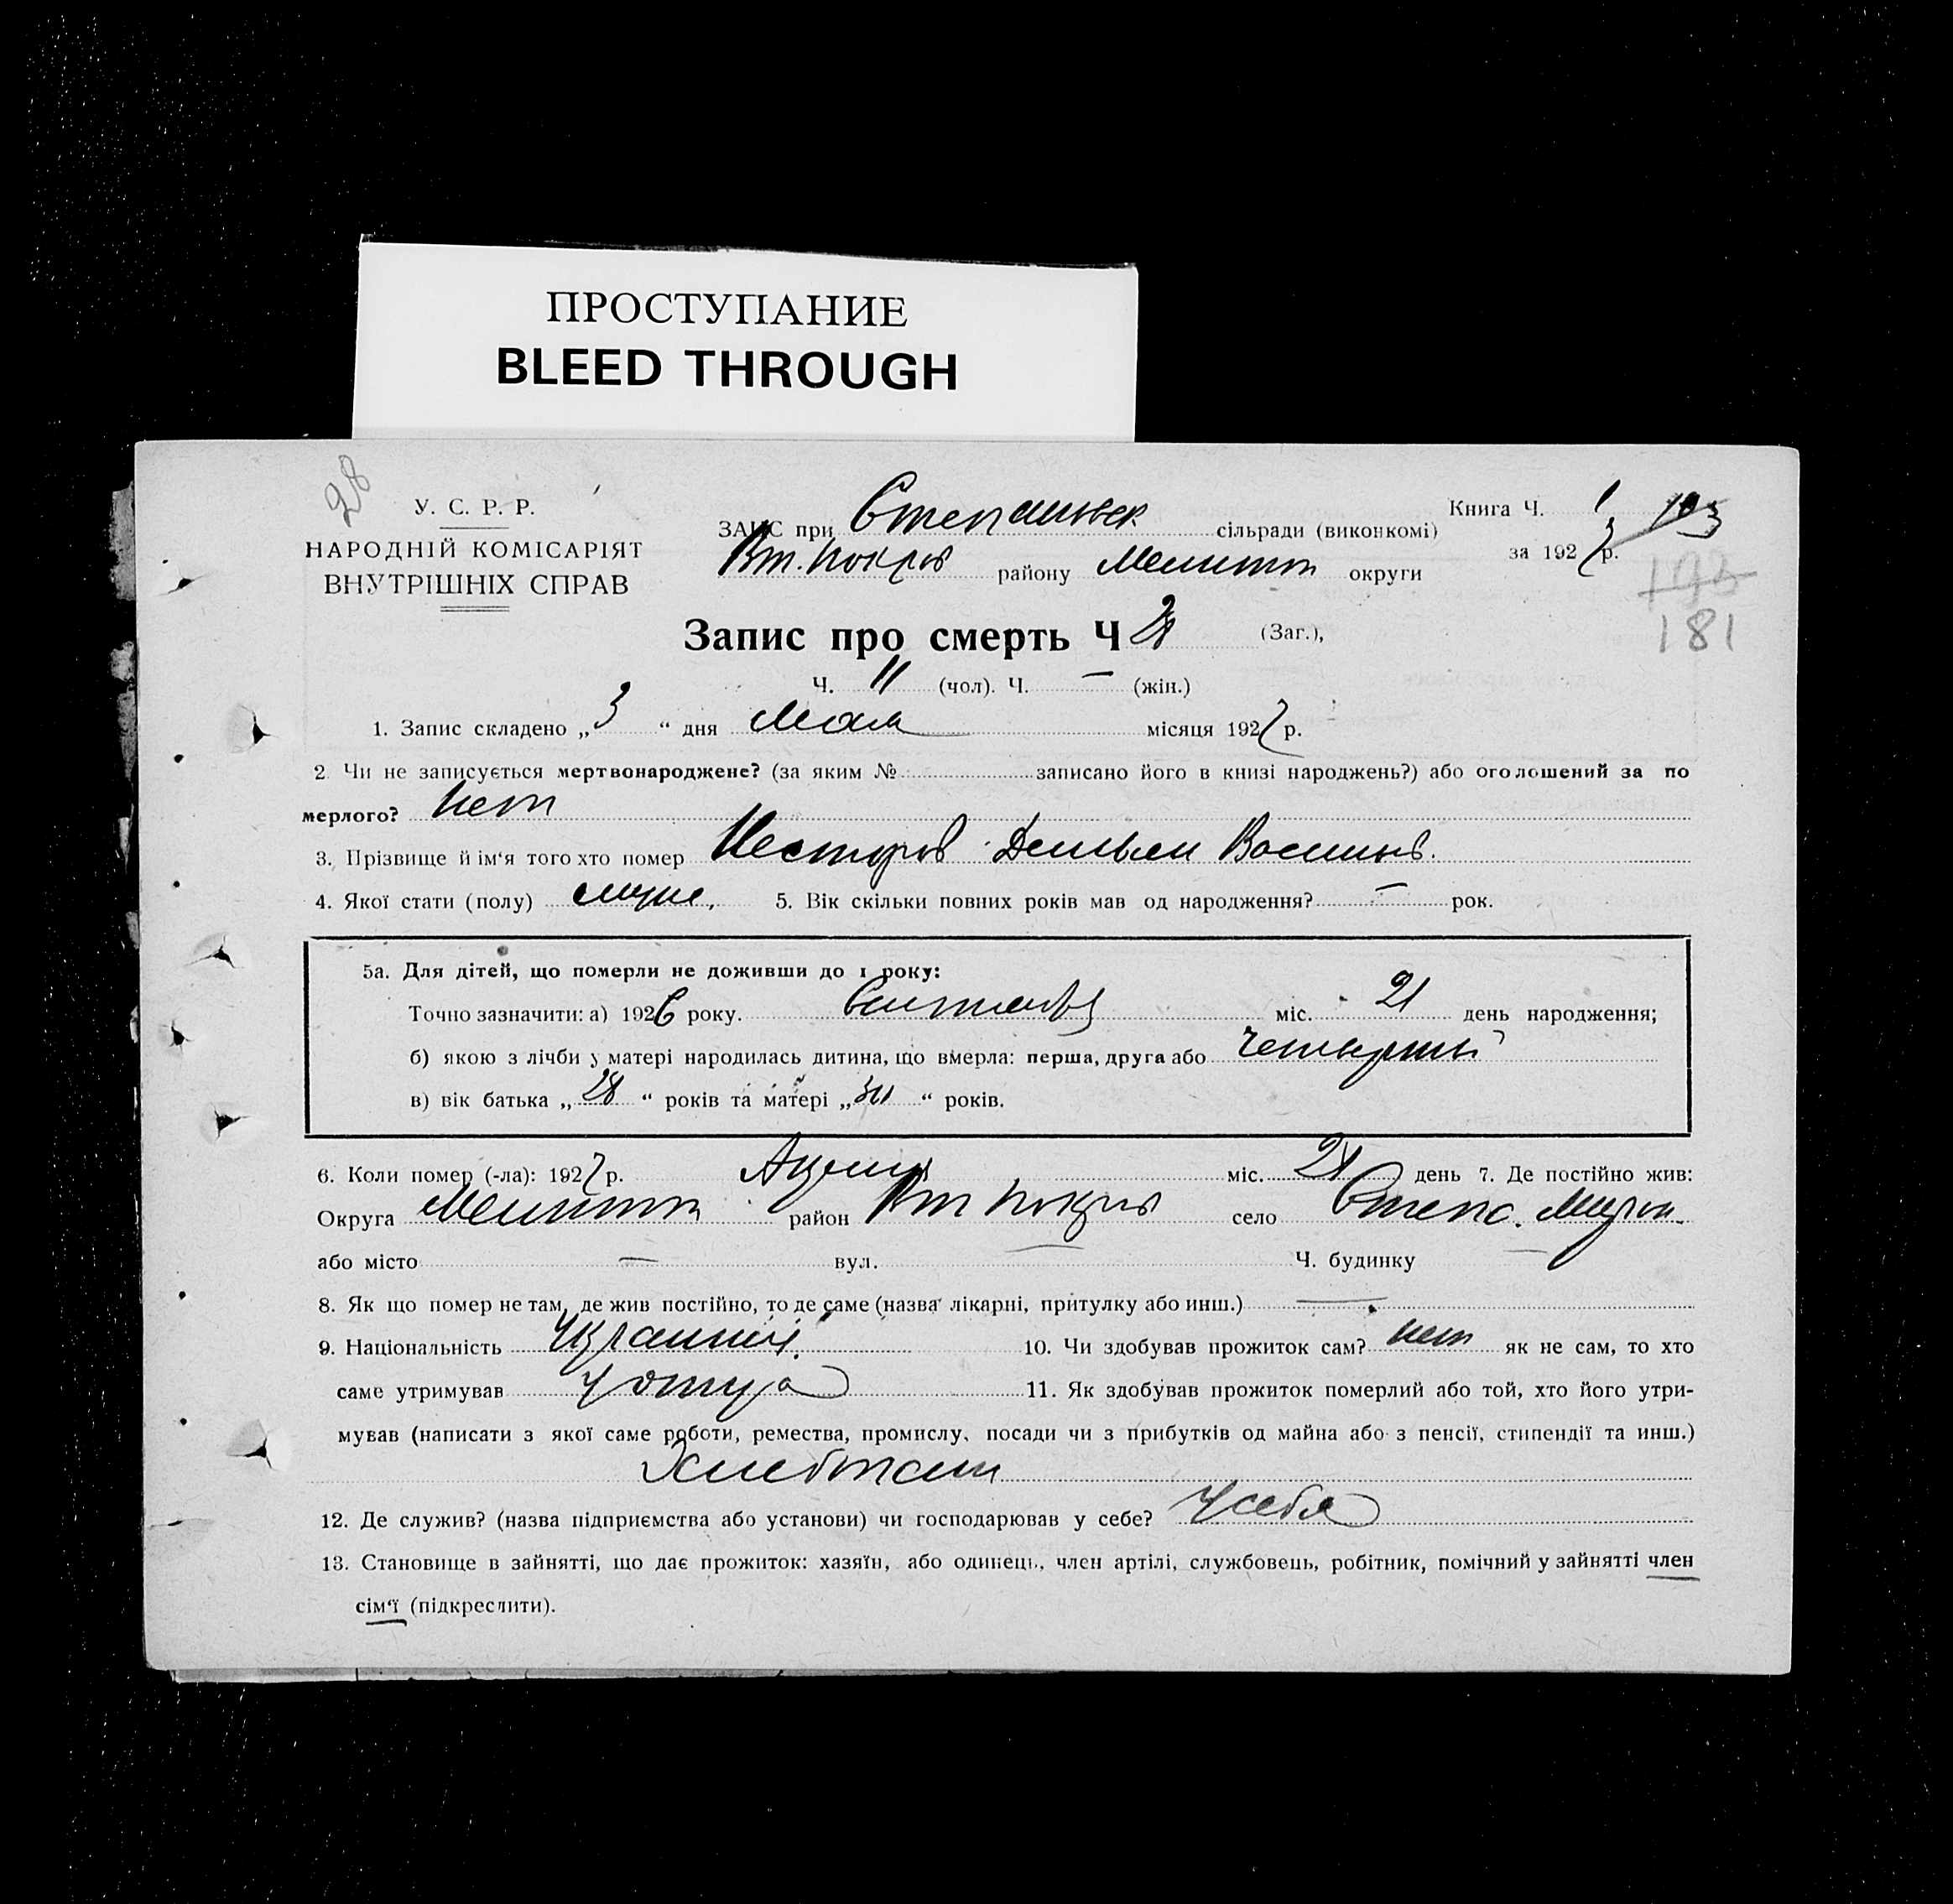 ПРОСТУПАНИЕ
BLEED THROUGH
28
У. С. Р. Р.
НАРОДНІЙ КОМІСАРІЯТ
ВНУТРІШНІХ СПРАВ
ЗАГС при Степановск сільради (виконкомі)
Книга Ч. 1
Вт. Покров району Мелитоп округи
за 1927 р.
193
181
Запис про смерть Ч 21 (Заг.),
Ч. 11 (чол). Ч. — (жін.)
1. Запис складено „3“ дня Мая місяця 1927 р.
2. Чи не записується мертвонароджене? (за яким № записано його в книзі народжень?) або оголошений за по
мерлого? нет
3. Прізвище й ім‘я того хто помер Нестеров Демьян Васильев.
4. Якої стати (полу) муже. 5. Вік скільки повних років мав од народження? — рок.
5а. Для дітей, що померли не доживши до 1 року:
Точно зазначити: а) 1926 року. міс. 21 день народження;
б) якою з лічби у матері народилась дитина, що вмерла: перша, друга або четвертый
в) вік батька „28“ років та матері „ “ років.
6. Коли помер (-ла): 1927 р. Апреля міс. день 7. Де постійно жив:
Округа Мелитоп район Вт Покров село Степан.
або місто — вул. — Ч. будинку —
8. Як що помер не там, де жив постійно, то де саме (назва лікарні, притулку або инш.) —
9. Національність Украинец. 10. Чи здобував прожиток сам? нет як не сам, то хто
саме утримував У отца 11. Як здобував прожиток померлий або той, хто його утри-
мував (написати з якої саме роботи, ремества, промислу, посади чи з прибутків од майна або з пенсії, стипендії та инш.)
Хлебопаш
12. Де служив? (назва підприємства або установи) чи господарював у себе? У себя
13. Становище в зайнятті, що дає прожиток: хазяїн, або одинець, член артілі, службовець, робітник, помічний у зайнятті член
сім‘ї (підкреслити).